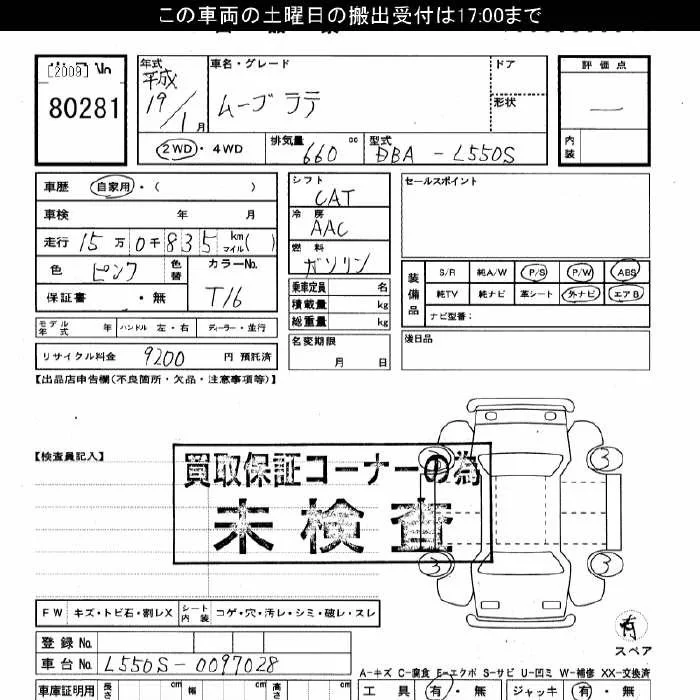 この車両の土曜日の搬出受付は17:00まで
[2009]
80281
年式 平成 19/1月
車名・グレード ムーブラテ
ドア
形状
評価点 —
内装
2WD・4WD
排気量 660 cc
型式 DBA-L550S
車歴 自家用・( )
車検 年 月
走行 15万0千835 km マイル( )
色 ピンク 色替
カラーNo. T16
保証書 ・無
モデル年式 年 ハンドル 左・右 ディーラー・並行
リサイクル料金 9200 円 預託済
シフト CAT
冷房 AAC
燃料 ガソリン
乗車定員 名
積載量 kg
総重量 kg
名変期限 月 日
セールスポイント
装備品
S/R 純A/W P/S P/W ABS
純TV 純ナビ 革シート 外ナビ エアB
ナビ型番:
後日品
【出品店申告欄(不良箇所・欠品・注意事項等)】
【検査員記入】
買取保証コーナーの為
未検査
3 3
3 3
有
スペア
FW キズ・トビ石・割レX シート内装 コゲ・穴・汚レ・シミ・破レ・スレ
登録No.
車台No. L550S-0097028
A-キズ C-腐食 E-エクボ S-サビ U-凹ミ W-補修 XX-交換済
車庫証明用 長さ cm 幅 cm 高さ cm
工具 有・無 ジャッキ 有・無